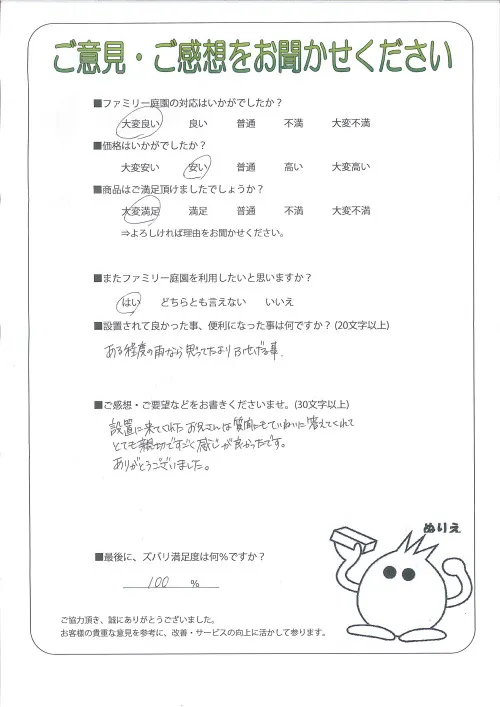 ご意見・ご感想をお聞かせください
■ファミリー庭園の対応はいかがでしたか？
大変良い 良い 普通 不満 大変不満
■価格はいかがでしたか？
大変安い 安い 普通 高い 大変高い
■商品はご満足頂けましたでしょうか？
大変満足 満足 普通 不満 大変不満
⇒よろしければ理由をお聞かせください。
■またファミリー庭園を利用したいと思いますか？
はい どちらとも言えない いいえ
■設置されて良かった事、便利になった事は何ですか？(20文字以上)
ある程度の雨なら思ってたより防げる事.
■ご感想・ご要望などをお書きくださいませ。(30文字以上)
設置に来てくれたお兄さんは質問にもていねいに答えてくれて
とても親切ですごく感じが良かったです。
ありがとうございました。
ぬりえ
■最後に、ズバリ満足度は何％ですか？
100 ％
ご協力頂き、誠にありがとうございました。
お客様の貴重な意見を参考に、改善・サービスの向上に活かして参ります。